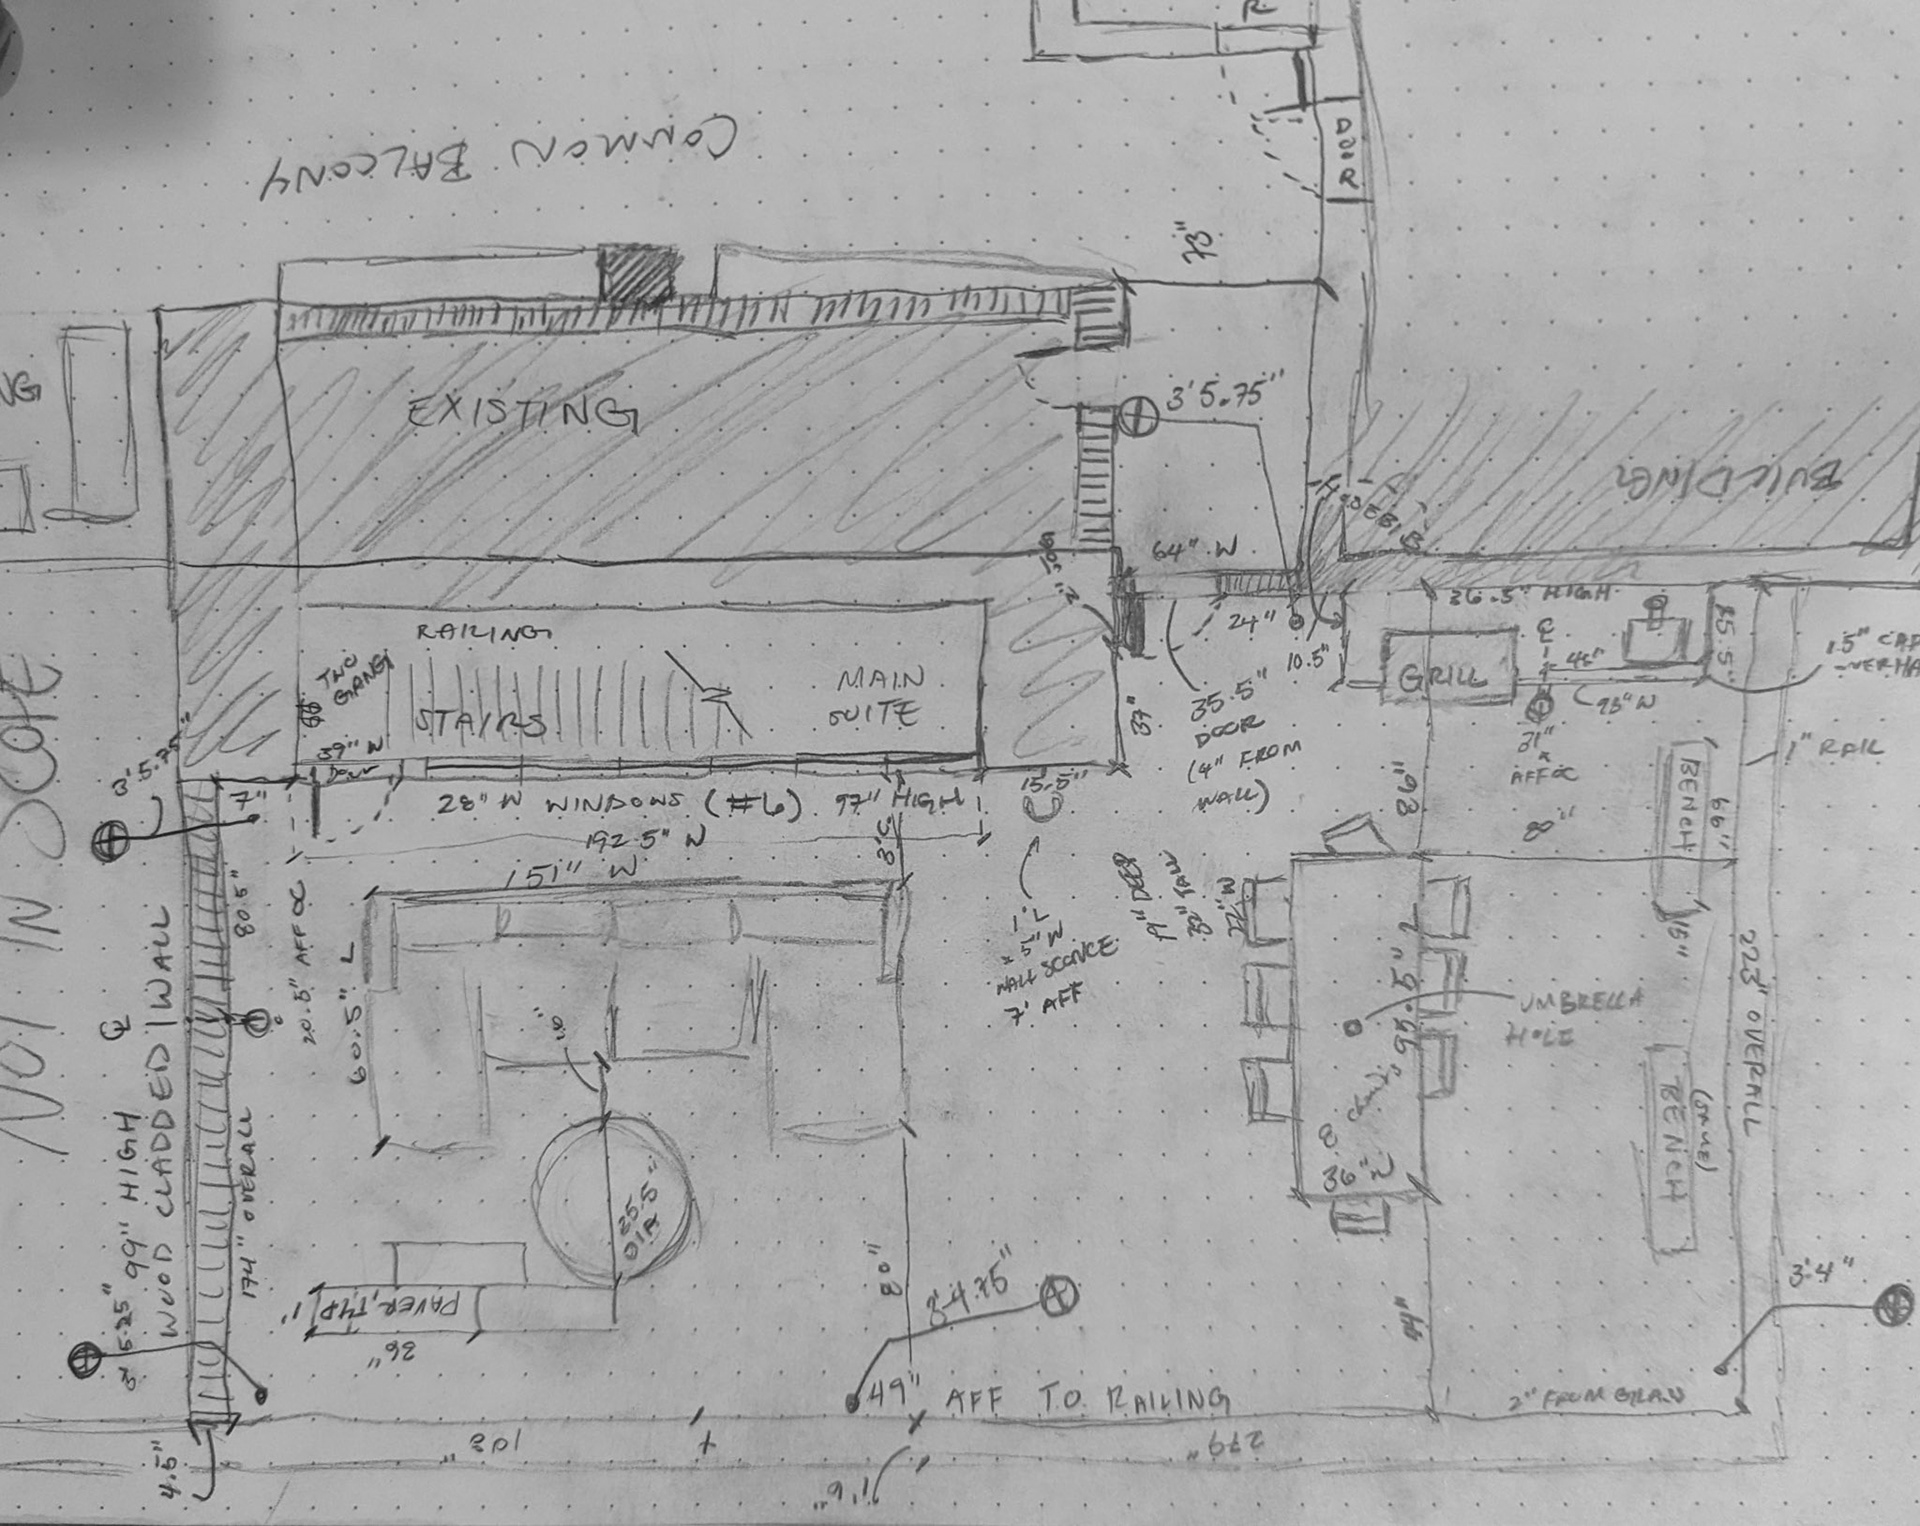 R
DOOR
COMMON BALCONY
73"
NG
EXISTING
3' 5.75"
BUILDING
64" W
HOSE BIB
36.5" HIGH
RAILING
TWO
GANG
24"
10.5"
25.5"
STAIRS
MAIN
SUITE
GRILL
℄
46"
93" W
1.5" CAP
35.5"
DOOR
(4" FROM
WALL)
37"
31"
AFF OC
1" RAIL
NOT IN SCOPE
3'.5.75"
7"
39" W
DOOR
28" W WINDOWS (#6) 97" HIGH
15.5"
192.5" W
3'
151" W
86"
8"
BENCH
66"
80.5"
20.5" AFF OC
60.5" L
1' L
x 5" W
WALL SCONCE
7' AFF
19" DEEP
32" TALL
22" W
95.5" L
UMBRELLA
HOLE
15"
223" OVERALL
BENCH
(SAME)
℄
99" HIGH
WOOD CLADDED WALL
174" OVERALL
3' 5.25"
25.5"
DIA
36"
PAVER, TYP
1'
36"
80"
3'-4.75"
44"
3'4"
49" AFF TO RAILING
2" FROM
4.5"
103"
279"
1'6"